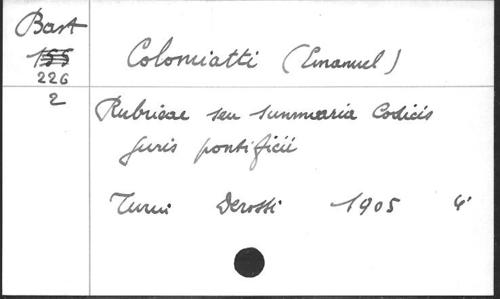 Bast
155
226
2
Colomiatti (Emanuel)
Rubricae seu summaria Codicis
Juris pontificii
Turin Derossi 1905